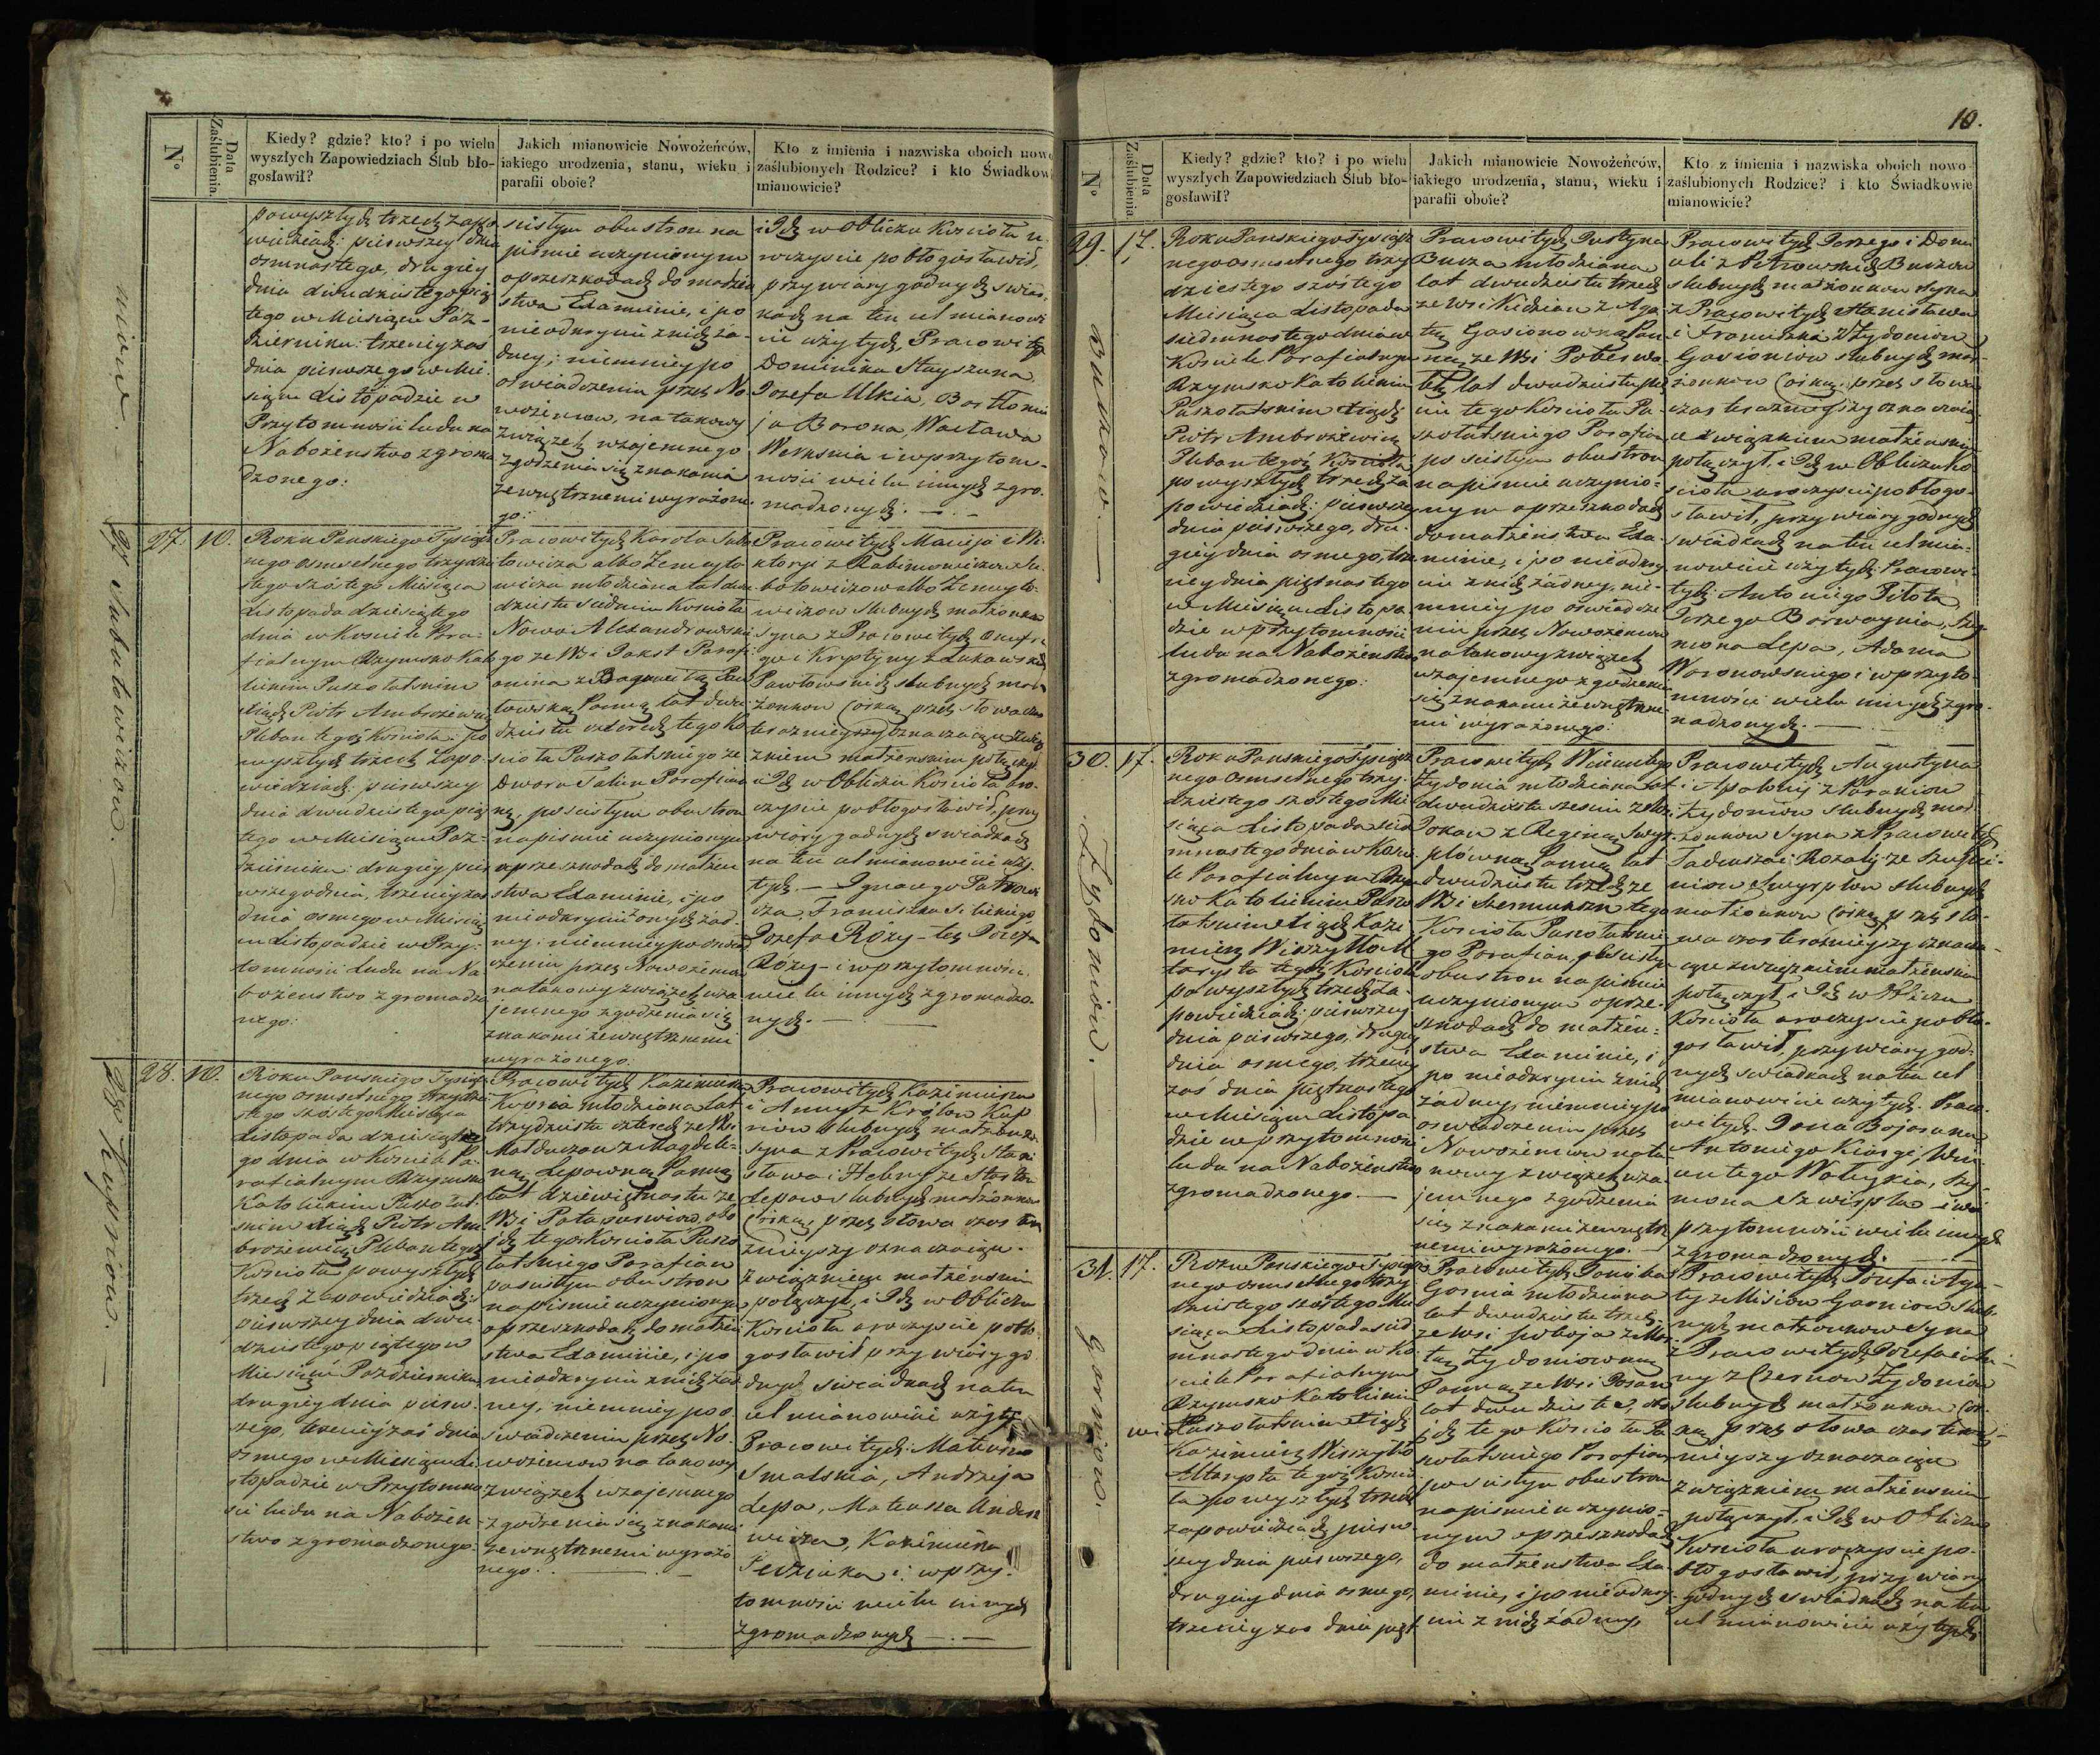 10.
N°
Data Zaślubienia.
Kiedy? gdzie? kto? i po wielu
wyszłych Zapowiedziach Ślub bło-
gosławił?
Jakich mianowicie Nowożeńców,
iakiego urodzenia, stanu, wieku i
parafii oboie?
Kto z imienia i nazwiska oboich nowo
zaślubionych Rodzice? i kto Świadkow
mianowicie?
powyszłych trzech Zapo
wiedziach: pierwszey dnia
osmnastego, drugiey
dnia dwudziestego pią
tego w Miesiącu Paź-
dzierniku: trzeciey zaś
dnia pierwszego w Mie
siącu Listopadzie w
Przytomności ludu na
Nabożeństwo zgroma
dzonego:
scisłym obustron na
piśmie uczynionym
o przeszkodach do małżeń
stwa Examinie, i po
nieodkryciu z nich ża-
dney; niemniey po
oświadczeniu przez No
wożencow, na takowy
Związek wzajemnego
zgodzenia się znakami
zewnętrznemi wyrażone
go:
i Ich w Obliczu Kościoła u
roczyscie pobłogosławił,
przy wiary godnych swiad
kach na ten cel mianowi
cie użytych, Pracowitych
Dominika Stayszuna
Józefa Ulkia, Bartłomie
ja Barona, Wacława
i w przytom-
ności wielu innych zgro-
madzonych.
27. 10.
27 Subatowiczow.
Roku Pańskiego Tysiącz
nego osmsetnego trzydzie
stego szóstego Miesiąca
Listopada dziesiątego
dnia w Kosciele Para-
fialnym Rzymsko Kato
lickim Puszołatskim
Xiądz Piotr Ambrożewicz
Pleban tegoż Kościoła po
wyszłych trzech Zapo-
wiedziach: pierwszey
dnia dwudziestego pią
tego w Miesiącu Paź-
dzierniku: drugiey pier
wszego dnia, trzeciey zaś
dnia osmego w Miesią
cu Listopadzie w Przy-
tomności Ludu na Na
bożeństwo zgromadzo
nego:
Pracowitych Karola Suba
towicza albo Żemayto
wicza młodziana lat dwu
dziestu siedmiu Kościoła
Nowo Alexandrowskie
go ze Wsi Parafi
anina z Pau
łowską Panną lat dwu
dziestu czterech tego Ko
scioła Puszołatskiego ze
Dworu Parafian
ką, po scisłym obustron
na piśmie uczynionym
o przeszkodach do małżeń
stwa Examinie, i po
nieodkryciu onych żad
ney: niemniey po oświad
czeniu przez Nowożencow
na takowy związek wza
jemnego zgodzenia się
znakami zewnętrznemi
wyrażonego.
Pracowitych Macieja i Wi
ktoryi z Rabinowiczow Su
batowiczow albo Żemayto-
wiczow Slubnych małżonkow
Syna z Pracowitych Onufre
go i Krystyny z
Pawłowskich slubnych mał
żonkow Corkę przez słowa czas
teraznieyszy oznaczaiące Zwią
zkiem małżenskim połączył
i Ich w Obliczu Kościoła uro-
czyscie pobłogosławił, przy
wiary godnych swiadkach
na ten cel mianowicie uży-
tych. — Ignacego
Franciszka
Józefa Rozy — też Józefa
Rózy — i w przytomności
wielu innych zgromadzo-
nych. —
28. 10.
28 Kupriow.
Roku Pańskiego Tysiącz
nego osmsetnego trzydzie
stego szóstego Miesiąca
Listopada dziesiąte
go dnia w Kosciele Pa-
rafialnym Rzymsko
Katolickim Puszołat
skim Xiądz Piotr Am
brożewicz Pleban tegoż
Kościoła powyszłych
trzech Zapowiedziach:
pierwszey dnia dwu
dziestego piątego w
Miesiącu Październiku
drugiey dnia pierw-
szego, trzeciey zaś dnia
osmego w Miesiącu Li
stopadzie w Przytomno
ści ludu na Nabożeń-
stwo zgromadzonego.
Pracowitych Kazimierza
Kupria młodziana lat
trzydziestu czterech ze Wsi
z Magdale-
ną Lepowną Panną
lat dziewiętnastu ze
Wsi obo
jch tego Kościoła Puszo
łatskiego Parafian
po scisłym obustron
na piśmie uczynionym
o przeszkodach do małżeń
stwa Examinie, i po
nieodkryciu z nich żad
ney, niemniey po o
świadczeniu przez No-
wożencow na takowy
Związek wzajemnego
zgodzenia się znakami
zewnętrznemi wyrażo
nego. —
Pracowitych Kazimierza
i Anny z Królow Kup
riow slubnych małżonkow
Syna z Pracowitych Stani
sława i Heleny ze
Lepow slubnych małżonkow
Corkę, przez słowa czas tera
znieyszy oznaczaiące
związkiem małżenskim
połączył, i Ich w Obliczu
Kościoła uroczyscie pobło
gosławił przy wiary go
dnych swiadkach na ten
cel mianowicie użyty
Pracowitych: Mateusza
Smalskia, Andrzeja
Lepa, Mateusza Andrze
wicza, Kazimierza
i w przy-
tomności wielu innych
zgromadzonych —
N°
Data Zaślubienia
Kiedy? gdzie? kto? i po wielu
wyszłych Zapowiedziach Ślub bło-
gosławił?
Jakich mianowicie Nowożeńców,
iakiego urodzenia, stanu, wieku i
parafii oboie?
Kto z imienia i nazwiska oboich nowo-
zaślubionych Rodzice? i kto Świadkowie
mianowicie?
29. 17.
Buczow. —
Roku Pańskiego Tysiącz
nego osmsetnego trzy
dziestego szóstego
Miesiąca Listopada
siedmnastego dnia w
Kosciele Parafialnym
Rzymsko Katolickim
Puszołatskim Xiądz
Piotr Ambrożewicz
Pleban tegoż Kościoła
powyszłych trzech Za
powiedziach: pierwszey
dnia pierwszego, dru-
giey dnia osmego, trze
ciey dnia piętnastego
w Miesiącu Listopa
dzie w przytomności
ludu na Nabożeństwo
zgromadzonego:
Pracowitych Justyna
Bucza młodziana
lat dwudziestu trzech
ze Wsi z Aga-
tą Gasionowną Pan
ną ze Wsi
lat dwudziestu pię
ciu tego Kościoła Pu-
szołatskiego Parafian
po scisłym obustron
na piśmie uczynio-
nym o przeszkodach
do małżeństwa Exa-
minie, i po nieodkry
ciu z nich żadney, nie-
mniey po oświadcze
niu przez Nowożencow
na takowy związek
wzajemnego zgodzenia
się znakami zewnętrzne
mi wyrażonego:
Pracowitych Jerzego i Domi
celi z Piotrowskich Buczow
slubnych małżonkow Syna
z Pracowitych Stanisława
i Franciszki z Żydoniow
Gasionow slubnych mał-
żonkow Corkę, przez słowa
czas teraznieyszy oznaczaią
ce związkiem małżenskim
połączył, i Ich w Obliczu Ko-
scioła uroczyscie pobłogo-
sławił, przy wiary godnych
swiadkach na ten cel mia-
nowicie użytych: Pracowi-
tych: Antoniego
Jerzego Szy
mona Lepa, Adama
Woronowskiego i w przyto-
mności wielu innych zgro-
madzonych. —
30. 17.
Żydoniow. —
Roku Pańskiego Tysiącz
nego Osmsetnego trzy-
dziestego szostego Mie
siąca Listopada sied
mnastego dnia w Kosci
le Parafialnym Rzym
sko Katolickim Puszo
łatskim Xiądz Kazi
mierz Wiszyłło Al
tarysta tegoż Kościoła
powyszłych trzech Za-
powiedziach: pierwszey
dnia pierwszego, drugiey
dnia osmego, trzeciey
zaś dnia piętnastego
w Miesiącu Listopa
dzie w przytomności
ludu na Nabożeństwo
zgromadzonego. —
Pracowitych Wincentego
Żydonia młodziana lat
dwudziestu sześciu z Wsi
z Reginą
Panną lat
dwudziestu trzech ze
Wsi tego
Kościoła Puszołatskie
go Parafian, po scisłym
obustron na piśmie
uczynionym o prze-
szkodach do małżeń-
stwa Examinie, i
po nieodkryciu z nich
żadney, niemniey po
oświadczeniu przez
Nowożencow na ta-
kowy związek wza-
jemnego zgodzenia
się znakami zewnętrz
nemi wyrażonego. —
Pracowitych Augustyna
i Apolonij z Baraniow
Żydoniow slubnych mał-
żonkow Syna z Pracowitych
Tadeusza i Rozalij ze
slubnych
małżonkow Corkę przez sło-
wa czas teraznieyszy oznacza-
iące związkiem małżenskim
połączył i Ich w Obliczu
Kościoła uroczyscie pobło-
gosławił, przy wiary god-
nych swiadkach na ten cel
mianowicie użytych. Praco-
witych Jana Bojaruna
Antoniego Win
centego Szy-
mona i w
przytomności wielu innych
zgromadzonych. —
31. 17.
Garniow.
Roku Pańskiego Tysiącz
nego osmsetnego trzy
dziestego szóstego Mie
siąca Listopada sied
mnastego dnia w Ko
sciele Parafialnym
Rzymsko Katolickim
Puszołatskim Xiądz
Kazimierz Wiszyłło
Altarysta tegoż Koscio
ła powyszłych trzech
zapowiedziach pierw
szey dnia pierwszego,
drugiey dnia osmego,
trzeciey zaś dnia pięt
Pracowitych
Garnia młodziana
lat dwudziestu trzech
ze Wsi z Mar-
tą Żydoniowną
Panną ze Wsi
lat dwudziestu, obo
jch tego Kościoła Pu
szołatskiego Parafian
po scisłym obustron
na piśmie uczynio-
nym o przeszkodach
do małżeństwa Exa-
minie, i po nieodkry-
ciu z nich żadney,
Pracowitych Józefa i Aga-
ty z Misiow Garniow slub
nych małżonkow Syna
z Pracowitych Józefa i An-
ny z Czerniow Żydoniow
slubnych małżonkow Cor-
kę przez słowa czas teraz-
nieyszy oznaczaiące
związkiem małżenskim
połączył, i Ich w Obliczu
Kościoła uroczyscie po-
błogosławił, przy wiary
godnych swiadkach na ten
cel mianowicie użytych